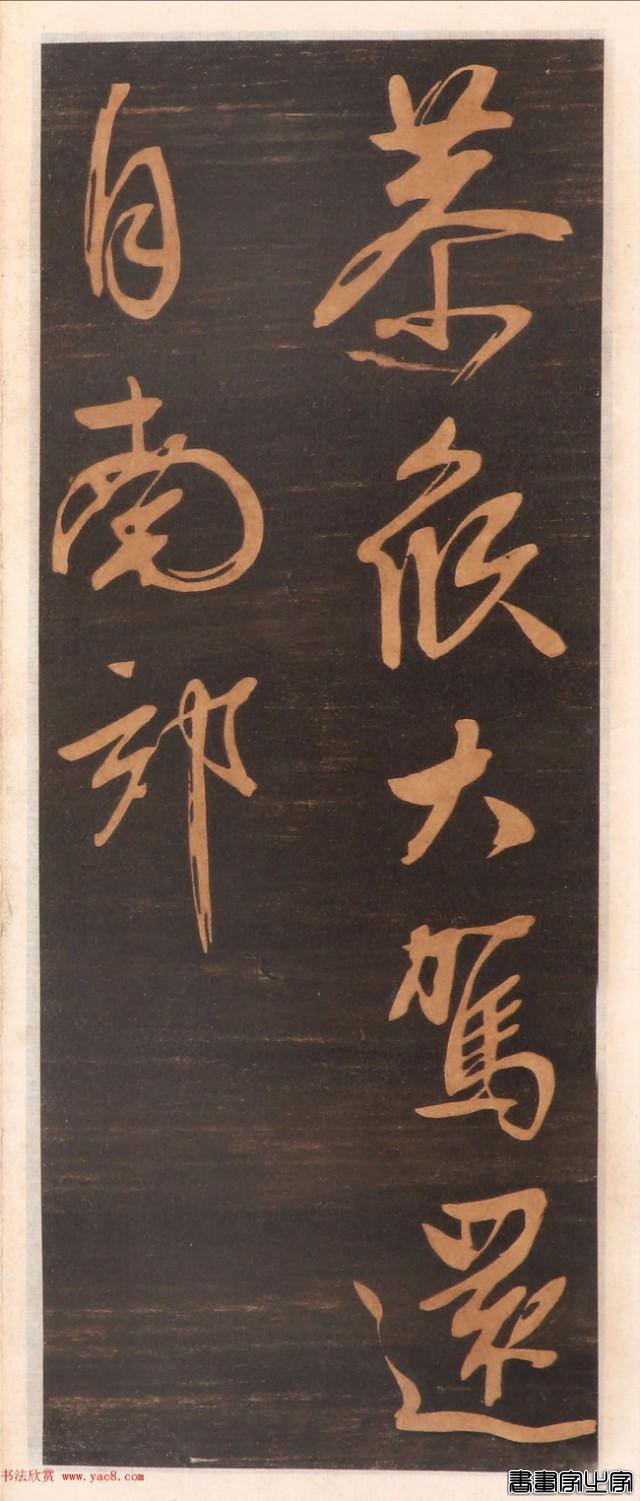 恭候大駕還
自南郊
书法欣赏 www.yac8.com
書畫家之家